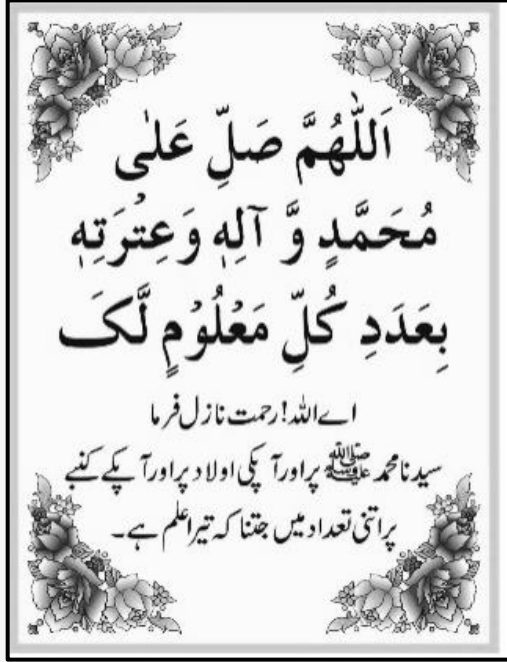 اَللّٰهُمَّ صَلِّ عَلٰى
مُحَمَّدٍ وَّ آلِهٖ وَعِتۡرَتِهٖ
بِعَدَدِ كُلِّ مَعۡلُوۡمٍ لَّکَ
اے اللہ! رحمت نازل فرما
سیدنا محمد ﷺ پر اور آپکی اولاد پر اور آپکے کنبے
پر اتنی تعداد میں جتنا کہ تیرا علم ہے۔